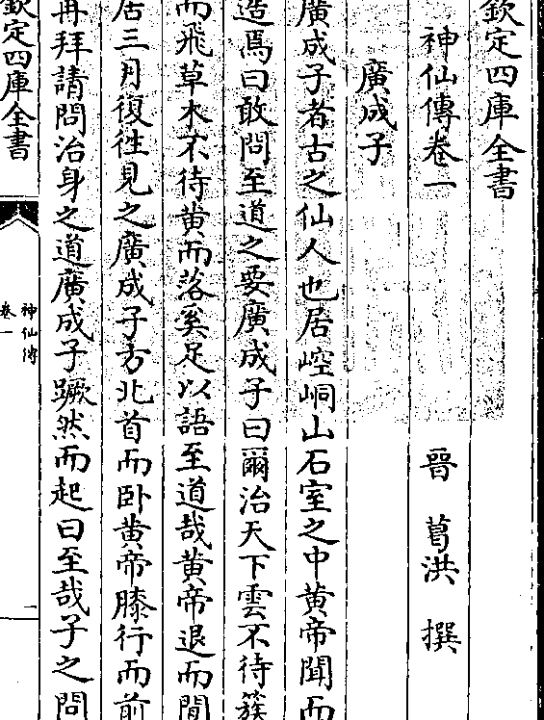 欽定四庫全書
神仙傳卷一
晉 葛洪 撰
廣成子
廣成子者古之仙人也居崆峒山石室之中黄帝聞而
造焉曰敢問至道之要廣成子曰爾治天下雲不待簇
而飛草木不待黄而落奚足以語至道哉黄帝退而閒
居三月復往見之廣成子方北首而卧黄帝膝行而前
再拜請問治身之道廣成子蹶然而起曰至哉子之問
欽定四庫全書
神仙傳
卷一
一